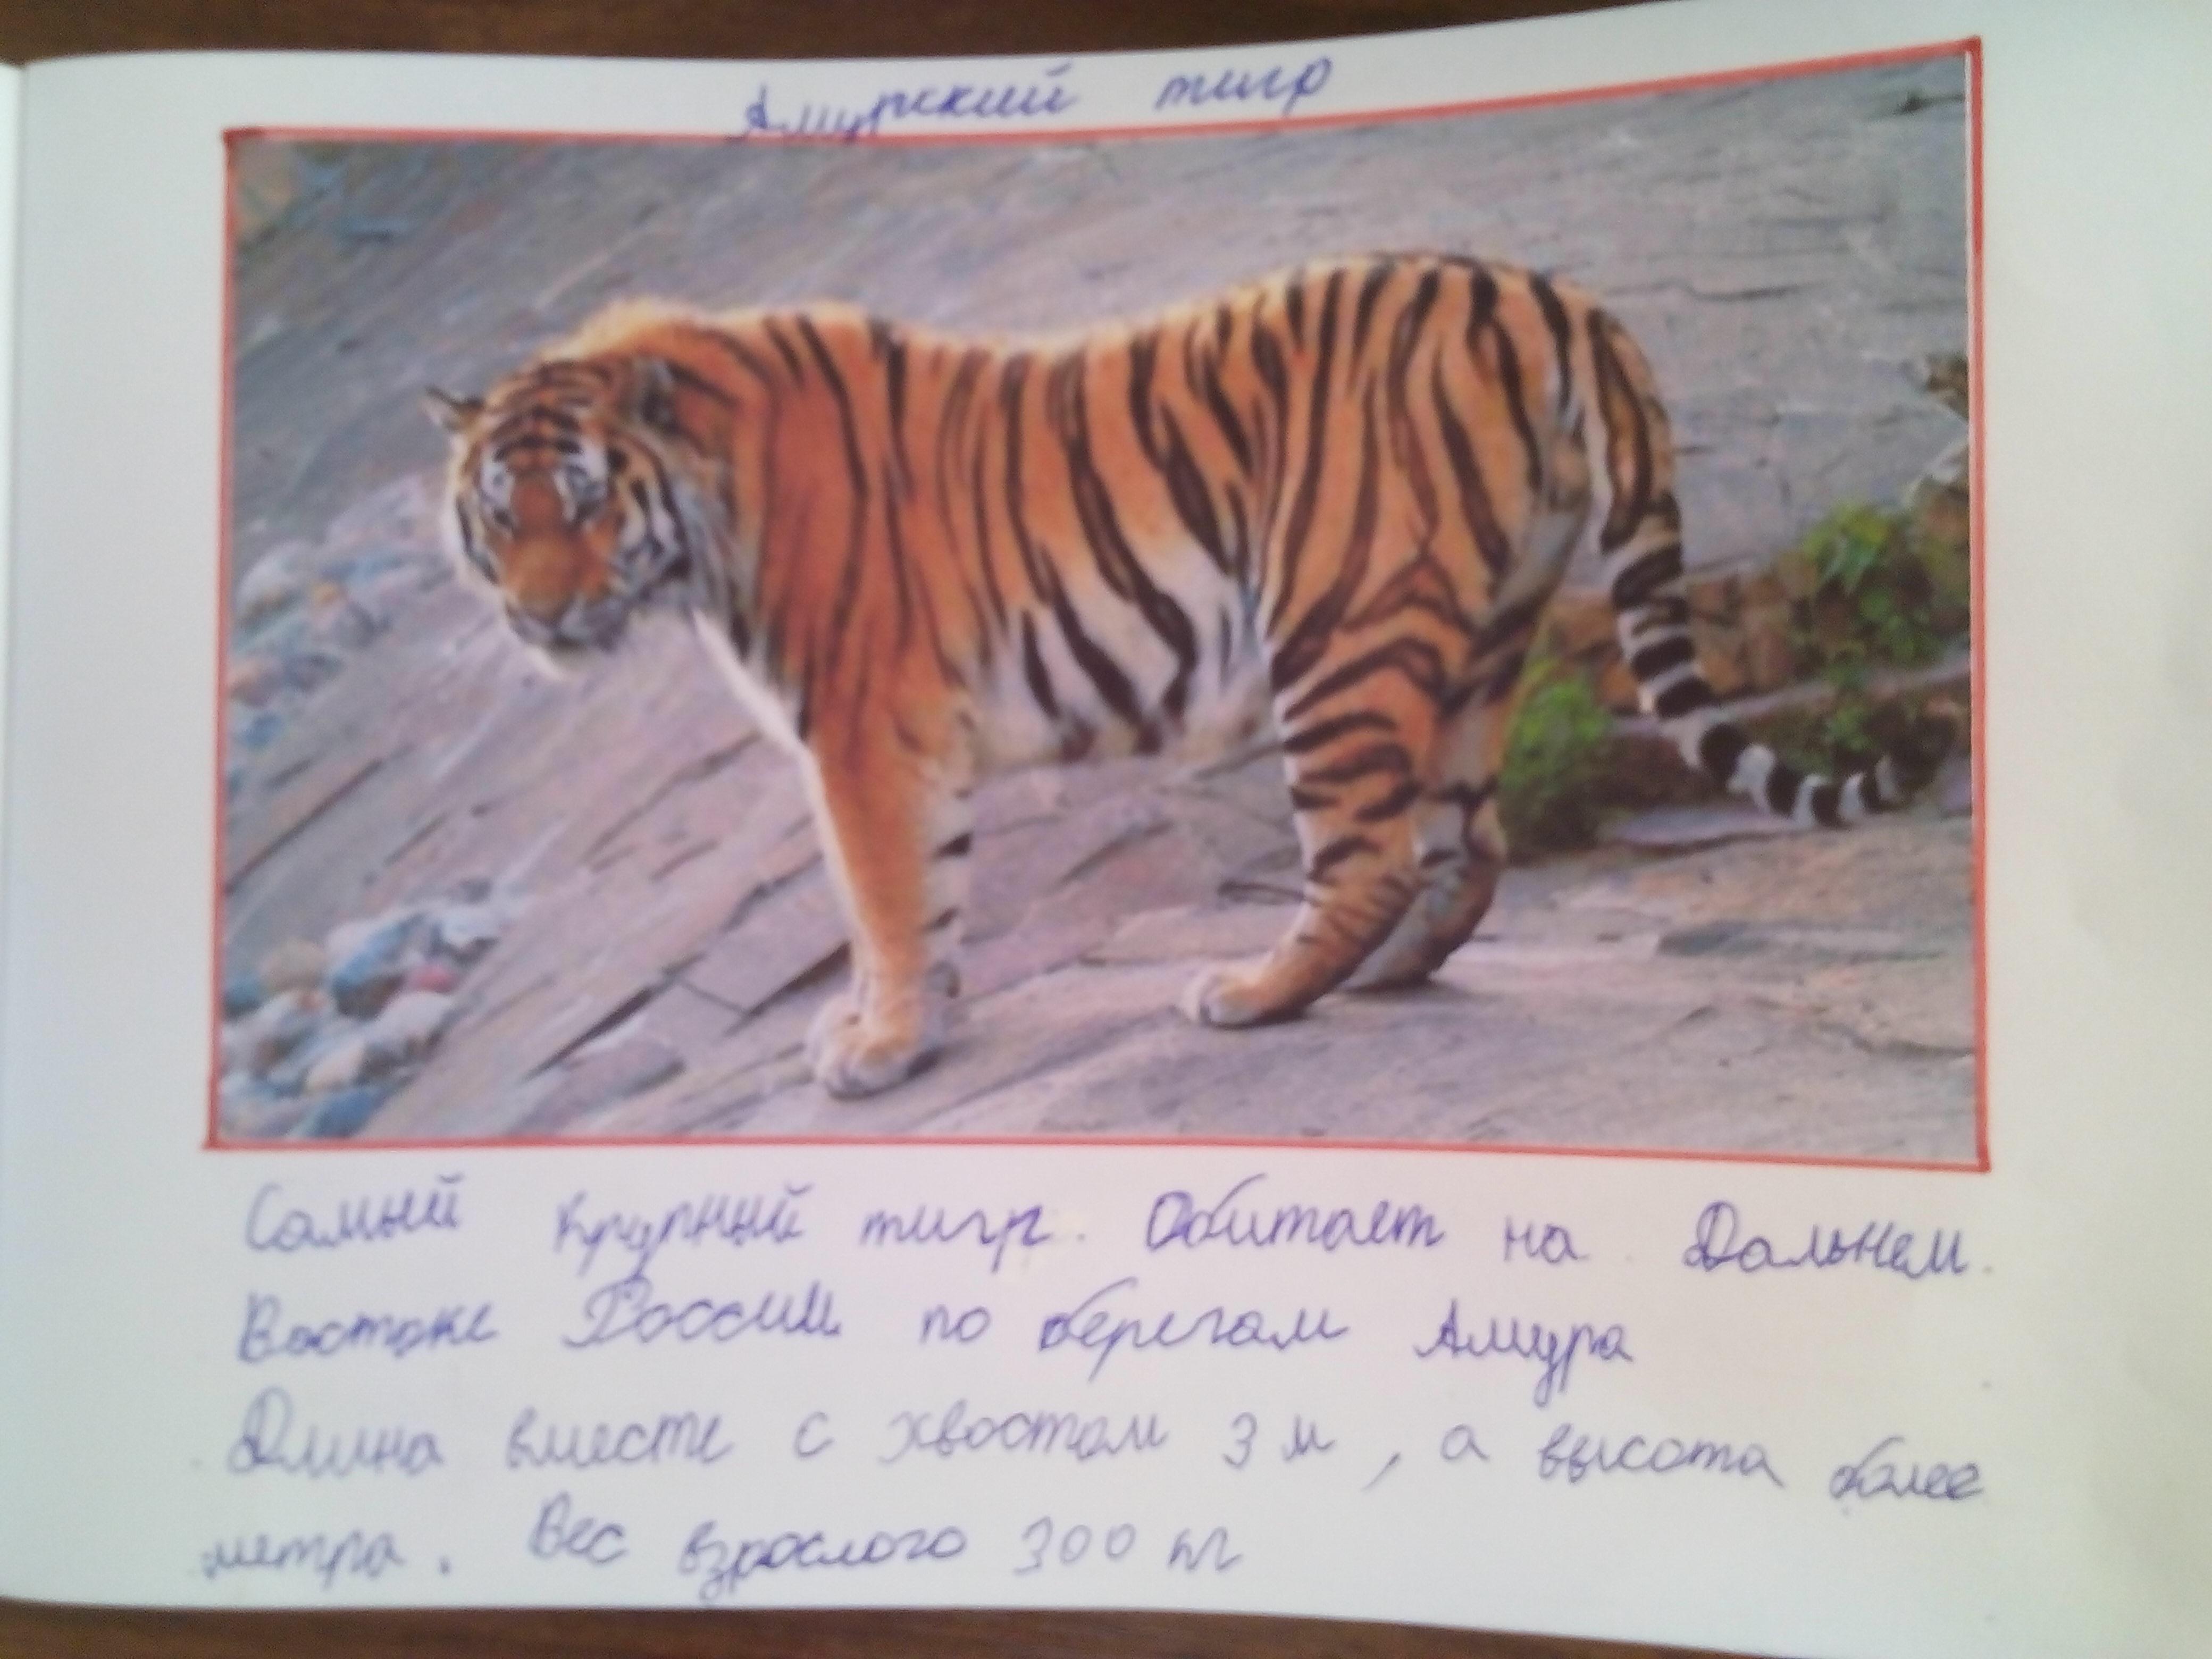 Амурский тигр
Самый крупный тигр. Обитает на Дальнем
Востоке России по берегам Амура
Длина вместе с хвостом 3 м, а высота более
метра. Вес взрослого 300 кг